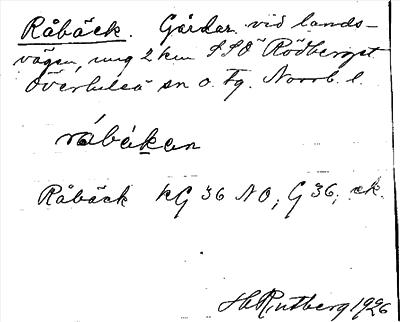 Råbäck. Gårdar vid lands-
vägen, ung 2 km SSÖ Rödberget
Överluleå sn o. tg. Norrb. l.
råbäkən
Råbäck KG 36 NO, G 36, ek.
H Rutberg 1926